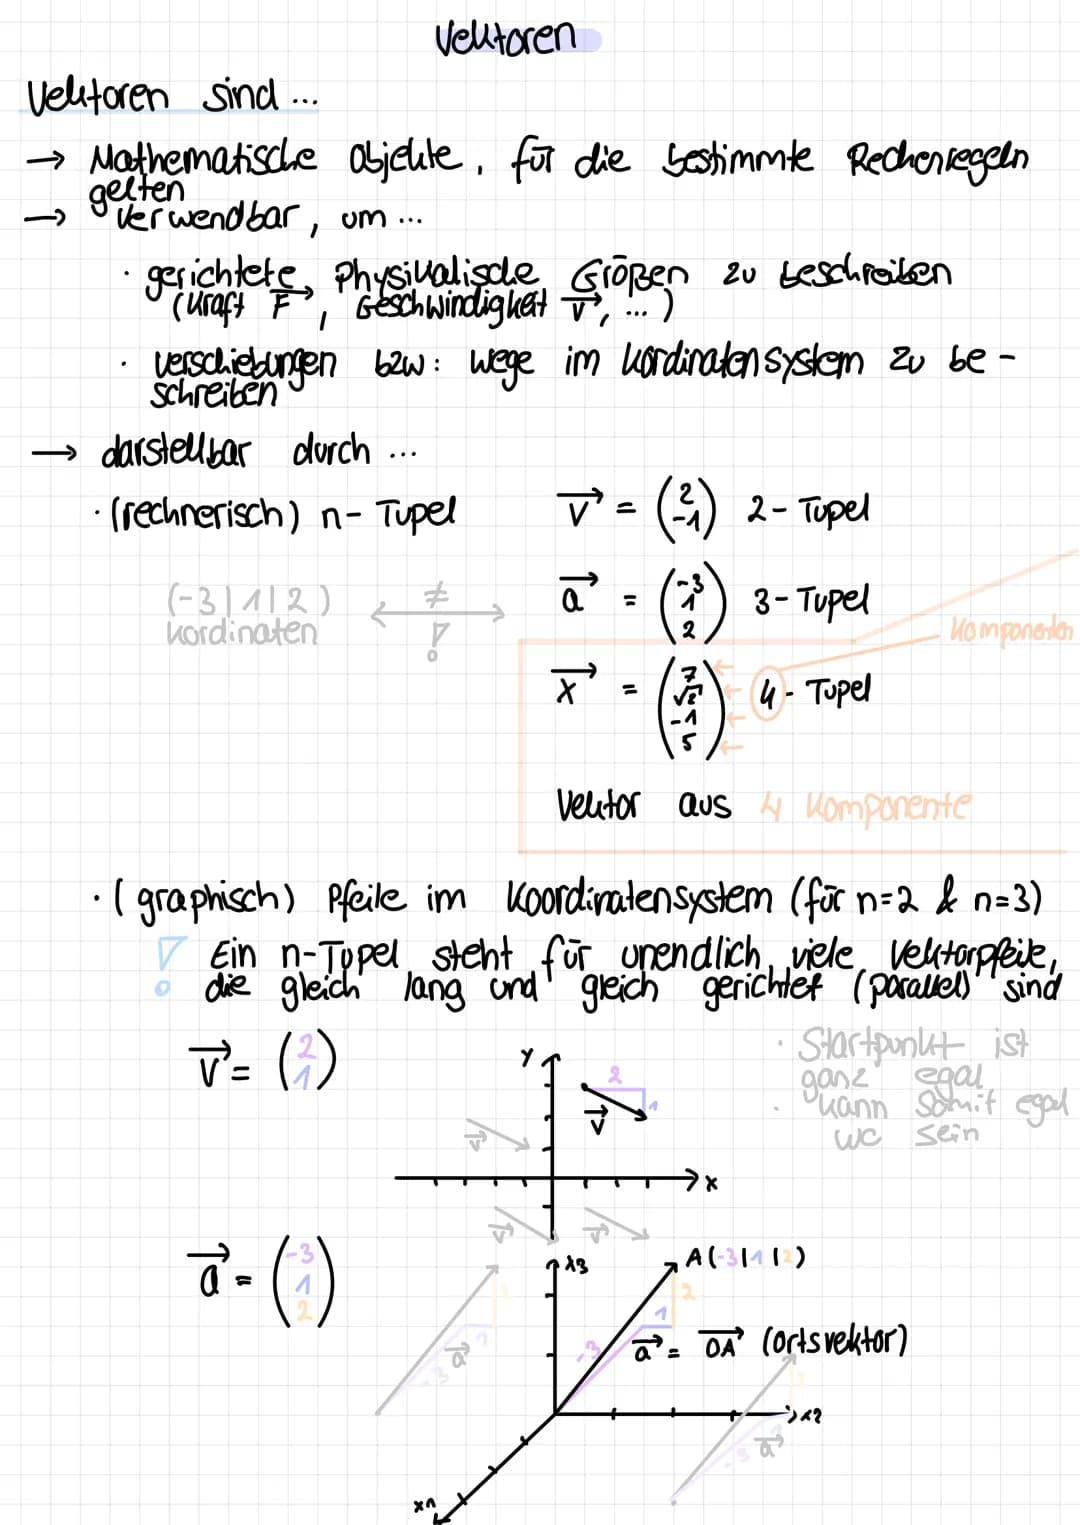 Vektoren
Vektoren sind ...
→ Mathematische Objekte, für die bestimmte Rechenregeln
gelten
→ Verwendbar, um ...
· gerichtete, Physikalische Größen zu beschreiben
(Kraft F→, Geschwindigkeit v→, ...)
· verschiebungen bzw: wege im kordinatensystem zu be-
schreiben
→ darstellbar durch ...
· (rechnerisch) n- Tupel
v→ = (2 -1) 2- Tupel
(-3|1|2) ≠ a→ = (-3 1 2) 3- Tupel
kordinaten !
Komponenten
x→ = (7 √2 -1 5) 4- Tupel
Vektor aus 4 Komponente
· (graphisch) Pfeile im Koordinatensystem (für n=2 & n=3)
! Ein n-Tupel steht für unendlich viele Vektorpfeile,
die gleich lang und gleich gerichtet (parallel) sind
v→ = (2 1)
y
2
1
v→
v→
x
v→
v→
· Startpunkt ist
ganz egal
· kann somit egal
wo sein
a→ = (-3 1 2)
x3
A(-3|1|2)
2
1
-3
a→ = OA→ (ortsvektor)
2
1
-3
a→
x2
2
-3
a→
x1